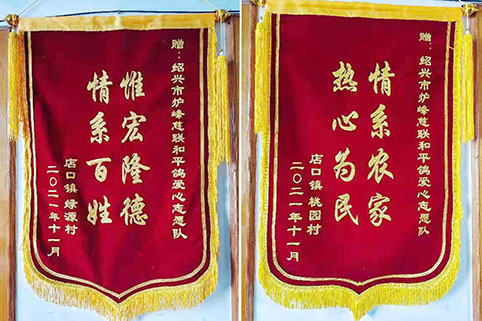 赠：绍兴市炉峰慈联和平鸽爱心志愿队
惟宏隆德
情系百姓
店口镇绿源村
二〇二一年十一月
赠：绍兴市炉峰慈联和平鸽爱心志愿队
情系农家
热心为民
店口镇桃园村
二〇二一年十一月